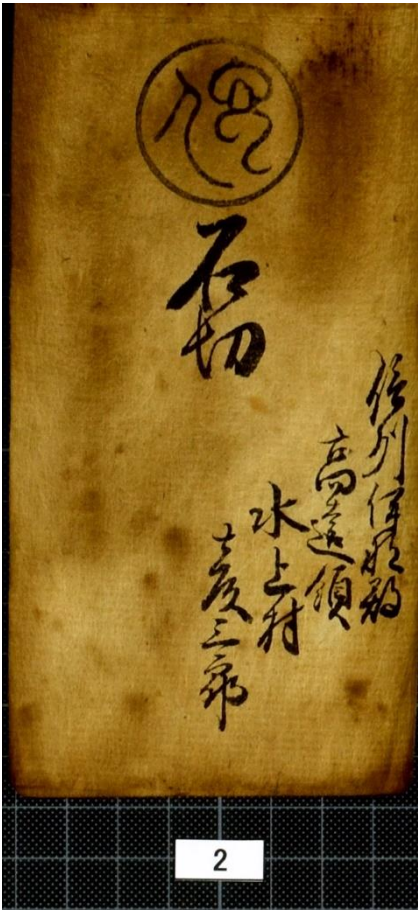 石切
信州伊那郡
高遠領
水上村
三郎
2